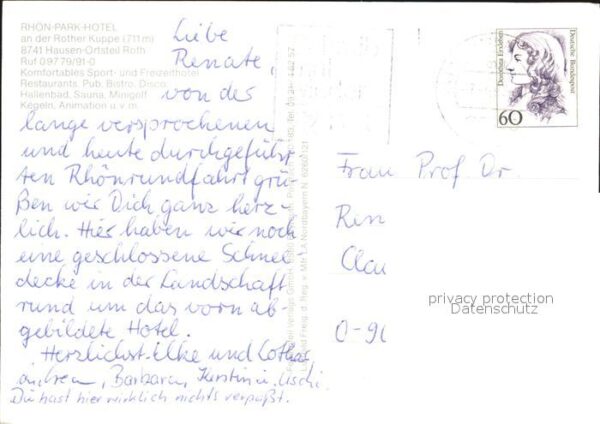 RHÖN-PARK-HOTEL
an der Rother Kuppe (711 m)
8741 Hausen-Ortsteil Roth
Ruf 09779/91-0
Komfortables Sport- und Freizeithotel
Restaurants, Pub, Bistro, Disco,
Hallenbad, Sauna, Minigolf
Kegeln, Animation u.v.m.
Liebe
Renate,
von der
lange versprochenen
und heute durchgeführ-
ten Rhönrundfahrt grü-
ßen wir Dich ganz herz-
lich. Hier haben wir noch
eine geschlossene Schnee
decke in der Landschaft
rund um das vorn ab-
gebildete Hotel.
Herzlichst Elke und Lothar
Barbara, Kerstin u. Uschi
Du hast hier wirklich nichts verpaßt.
Dorothea Erxleben
Deutsche Bundespost
60
Frau Prof Dr.
Ren
Clau
O-90
privacy protection
Datenschutz